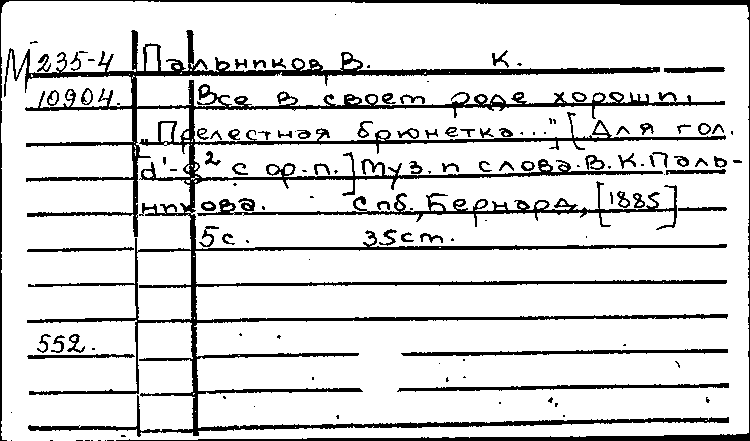 М 235-4 Пальников, В. К.
10904. Все в своем роде хороши,
„Прелестная брюнетка..." [Для гол.
d¹-g² с ф.п.] Муз. и слова В.К. Паль-
никова. Спб., Бернард, [1885]
5 с. 35 см.
552.